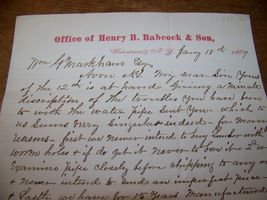 Office of Henry H. Babcock & Son,
Jany 18th 1869
Wm G Markham Esqr
Avon My Dear Sir Yours
of the 12th is at hand Giving a minute
discription, of the troubles You have been
to with the water pipe Sent You. which to
us Seems Very Singular indeed - for Many
reasons - first we never intend to buy Lumber with
worm holes if we do get it never to bore it 2
Examine pipe Closely before shipping to any one
& never intend to Send an imperfect piece -
& Lastly we have for 15 Years Manufactured